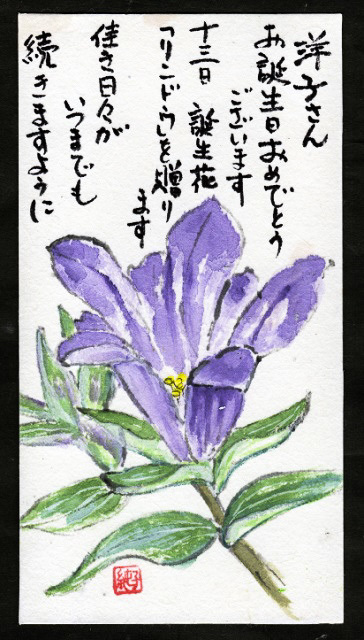 洋子さん
お誕生日おめでとう
ございます
十三日 誕生花
「リンドウ」を贈り
ます
佳き日々が
いつまでも
続きますように